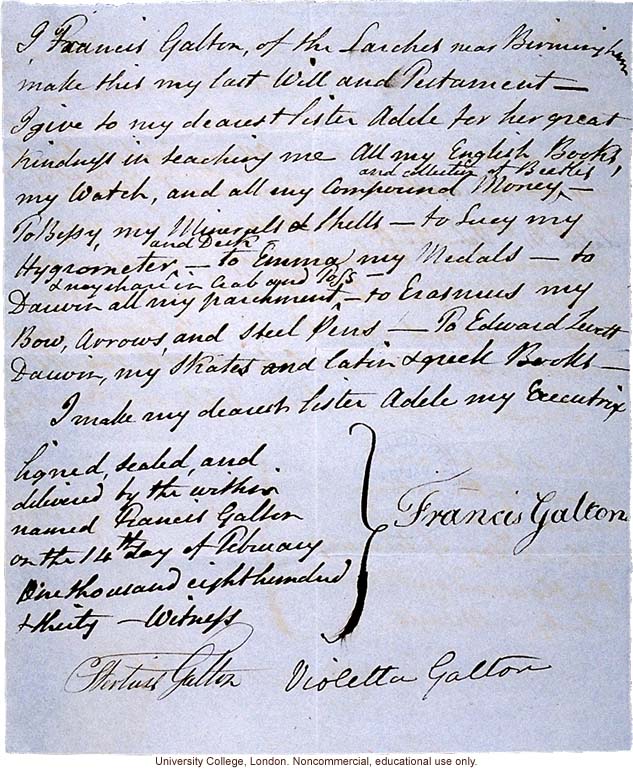 I Francis Galton, of the Larches near Birmingham
make this my last Will and Testament —
I give to my dearest Sister Adele for her great
kindness in teaching me All my English Books,
and collection of Beetles
my Watch, and all my Compound Money, —
To Bessy, my Minerals & Shells — to Lucy my
and Desk
Hygrometer — to Emma, my Medals — to
& my share in Crab and
Darwin all my parchment, — to Erasmus my
Bow, Arrows, and Steel Pens — To Edward Levett
Darwin, my Skates and latin & greek Books —
I make my dearest Sister Adele my Executrix
Signed, sealed, and
delivered by the within
named Francis Galton
on the 14th day of February
One thousand eight hundred
& thirty — Witness
Francis Galton
Tertius Galton Violetta Galton
University College, London. Noncommercial, educational use only.